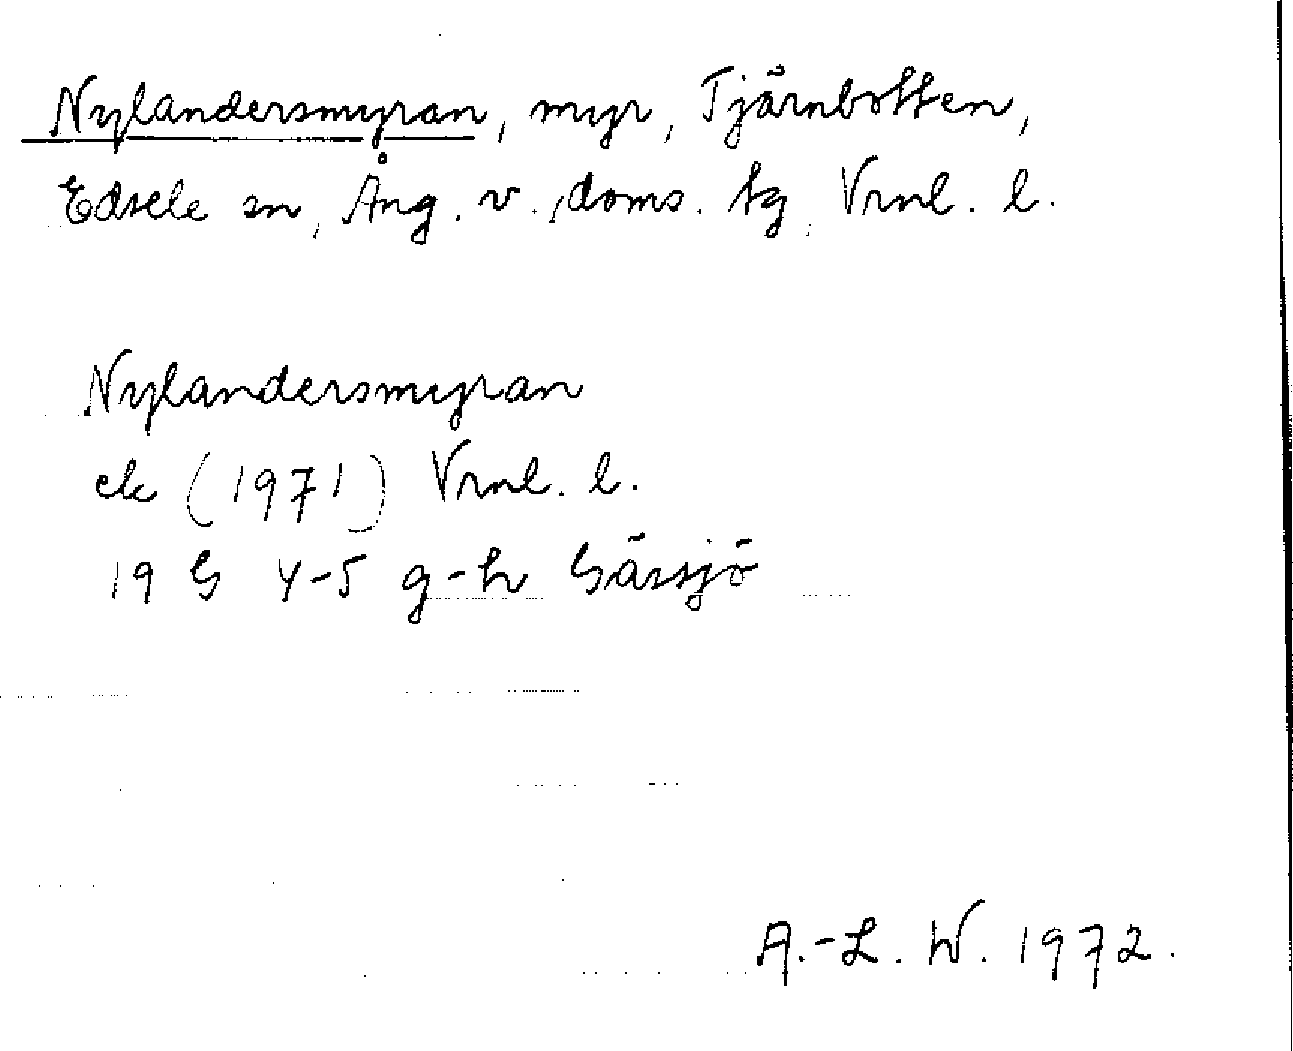 Nylandersmyran, myr, Tjärnbotten,
Edsele sn, Ång. v., doms. tg, Vrnl. l.
Nylandersmyran
ek (1971) Vrnl. l.
19 G 4-5 g-h Gässjö
A.-L. W. 1972.